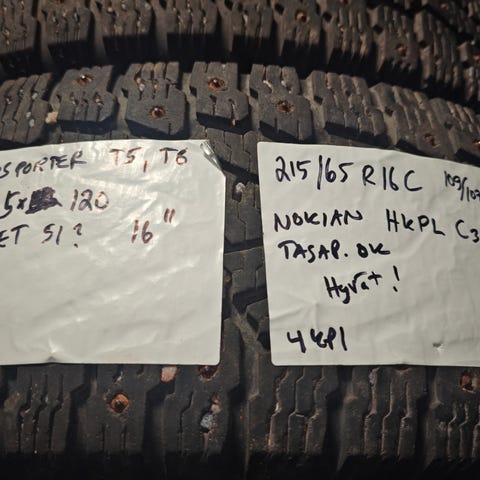 SPORTER T5, T6
5x 120
ET 51? 16"
215/65 R16C 109/107
NOKIAN HKPL C3
TASAP. OK
Hyvät!
4 kpl